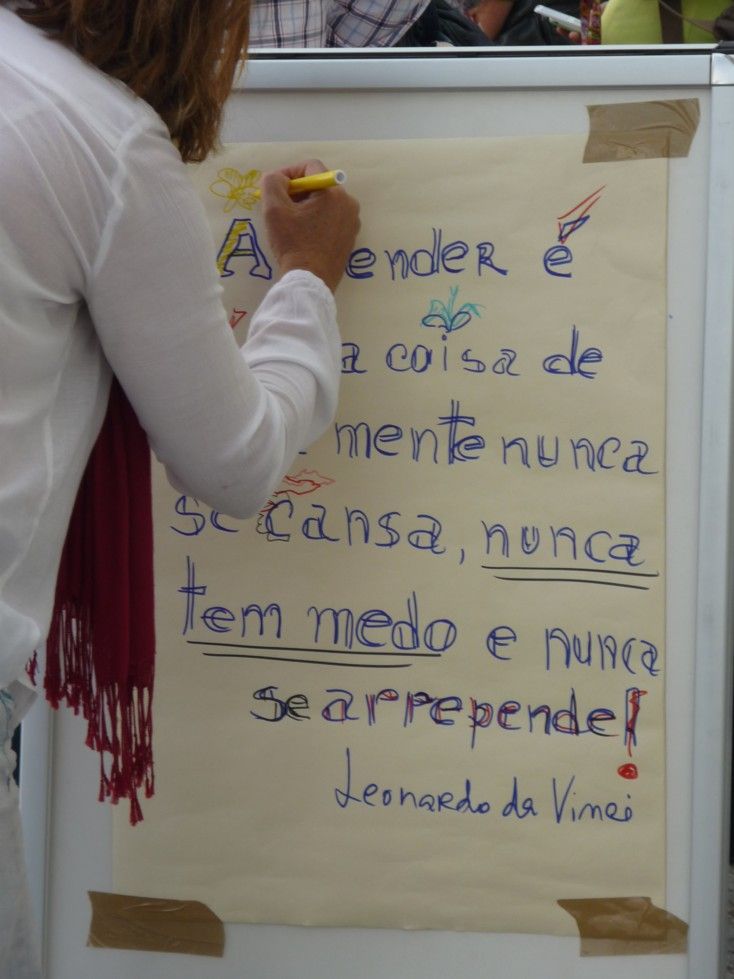 A ender é
a coisa de
mente nunca
se cansa, nunca
tem medo e nunca
se arrepende!
Leonardo da Vinci